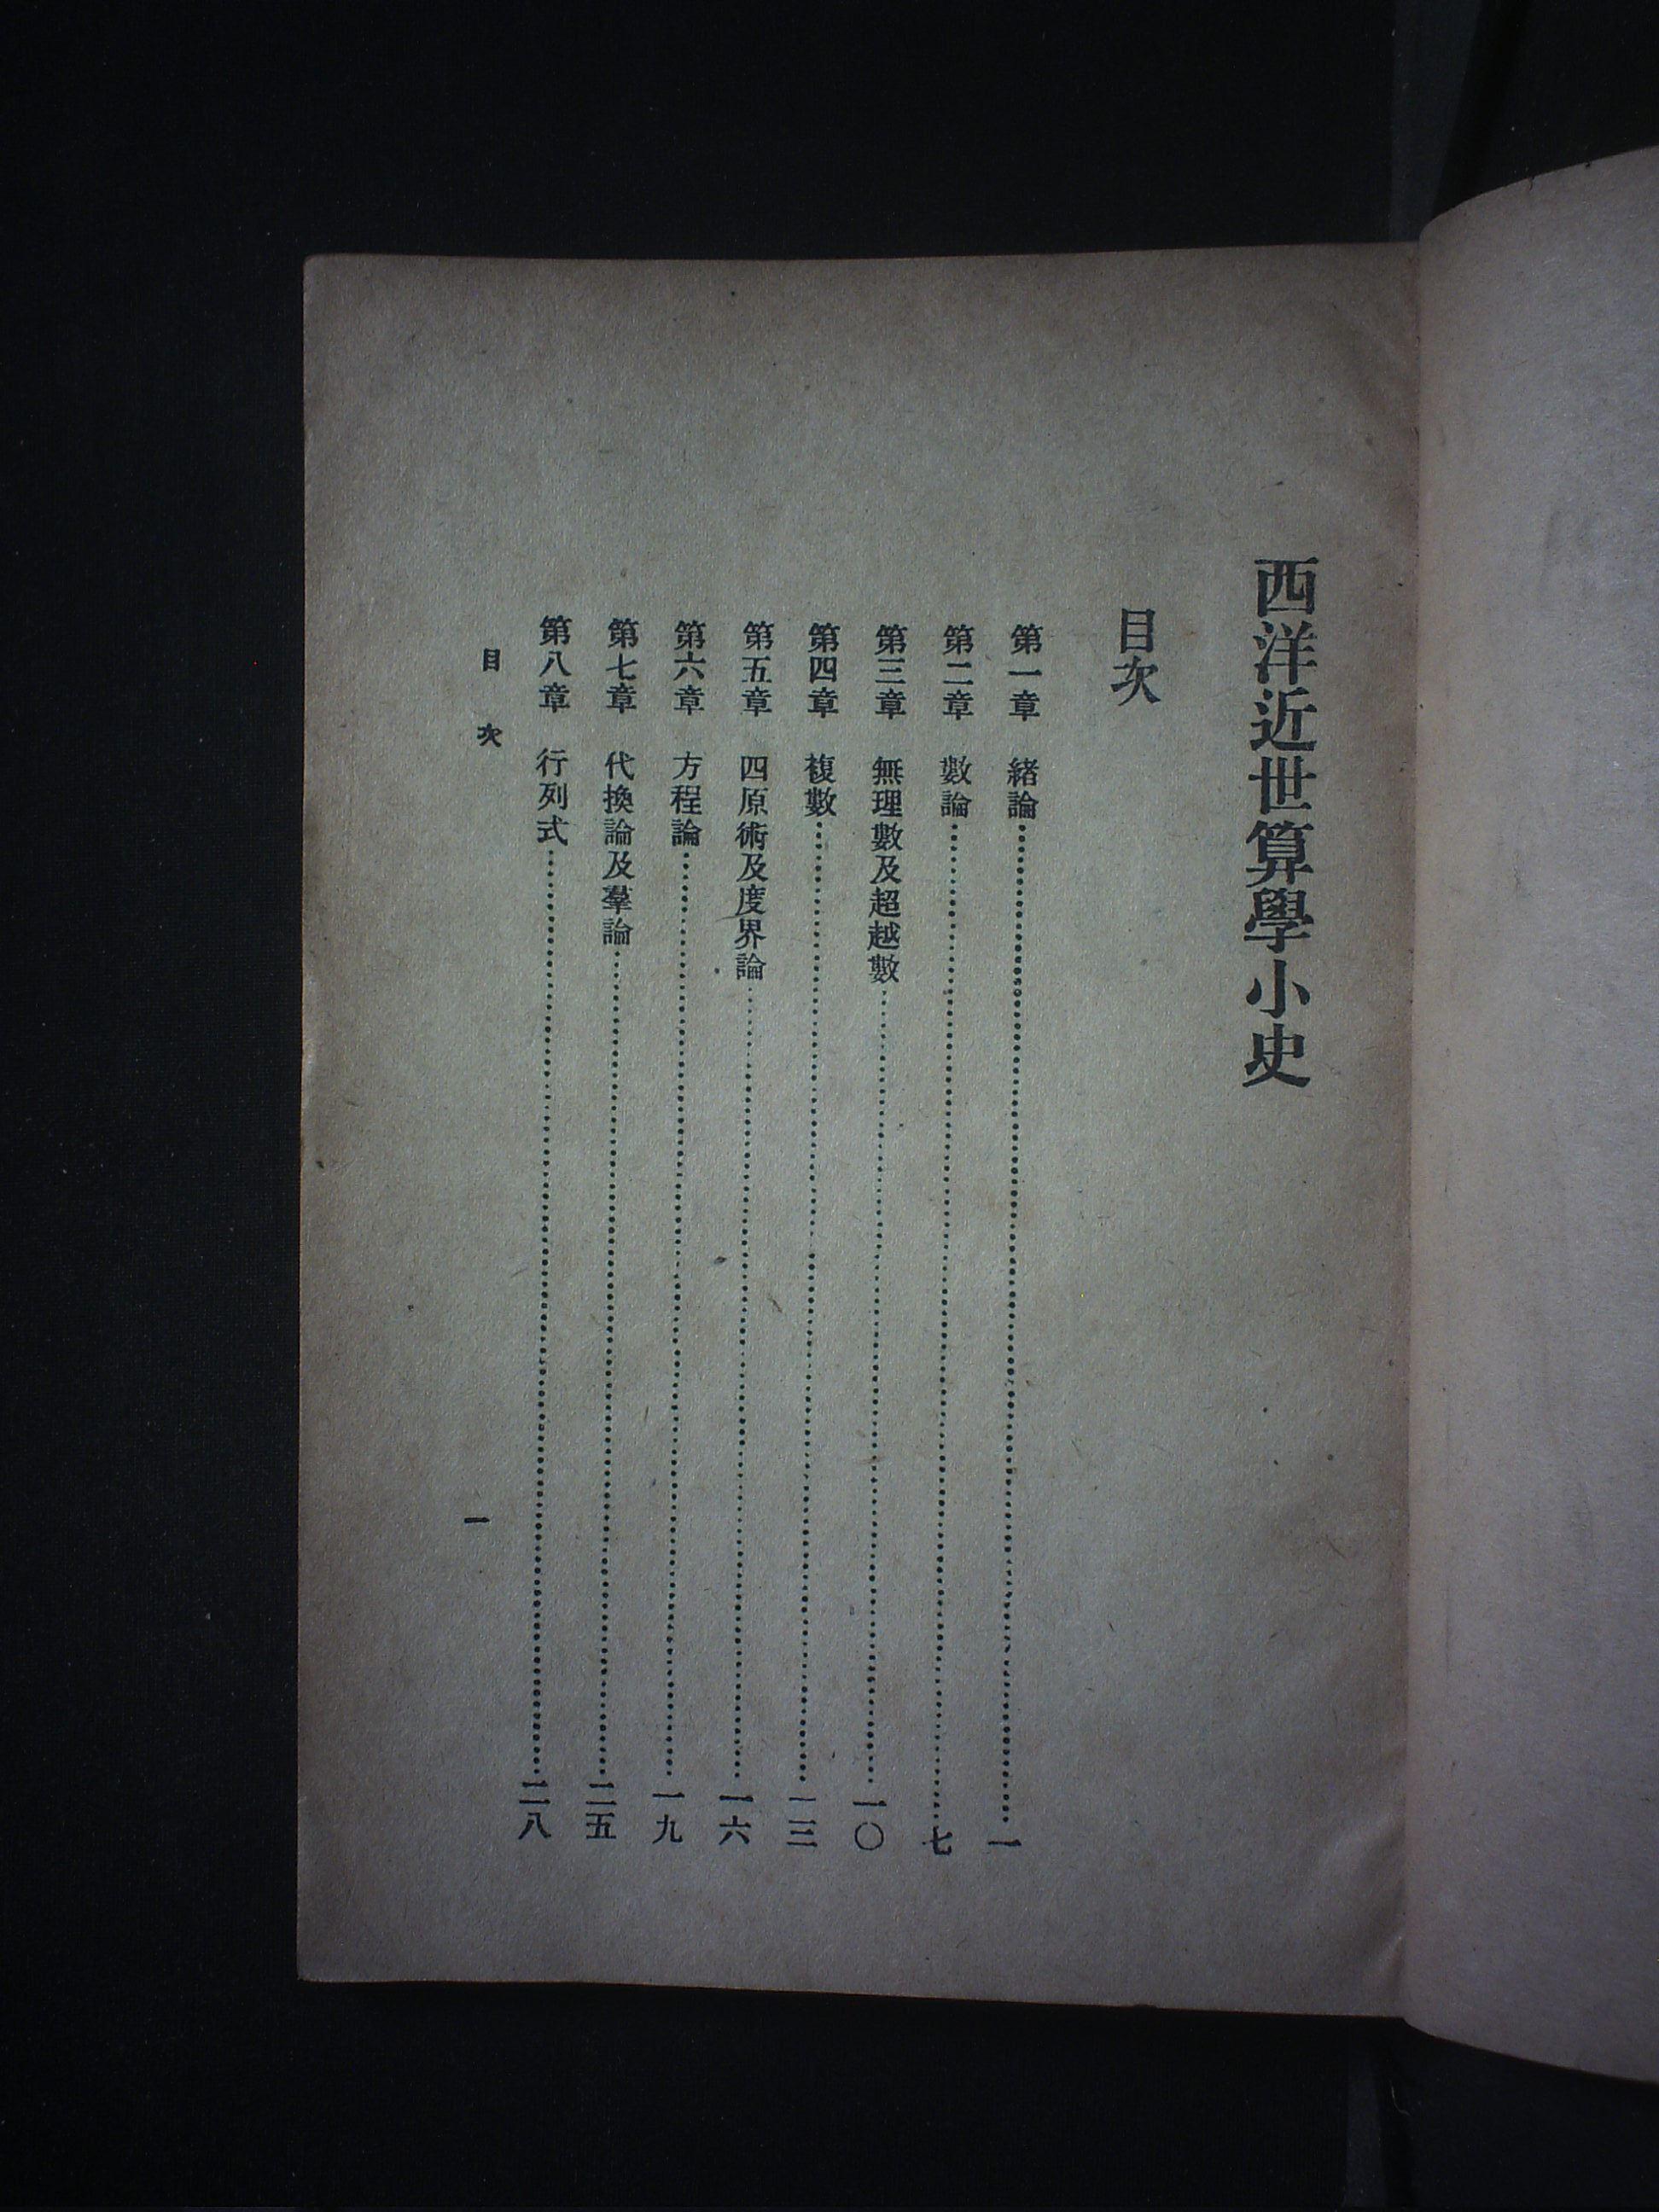 西洋近世算學小史
目次
第一章　緒論……一
第二章　數論……七
第三章　無理數及超越數……一〇
第四章　複數……一三
第五章　四原術及度界論……一六
第六章　方程論……一九
第七章　代換論及羣論……二五
第八章　行列式……二八
目　次
一